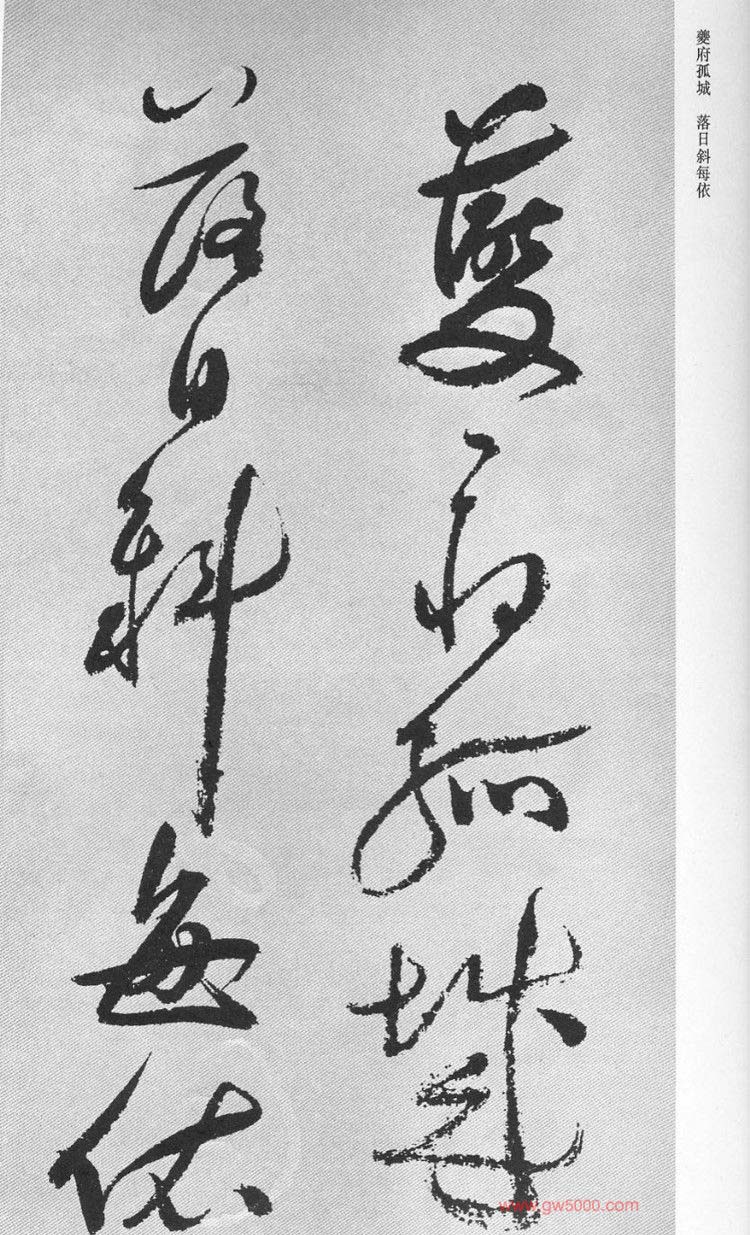 夔府孤城 落日斜每依
夔府孤城
落日斜每依
www.gw5000.com